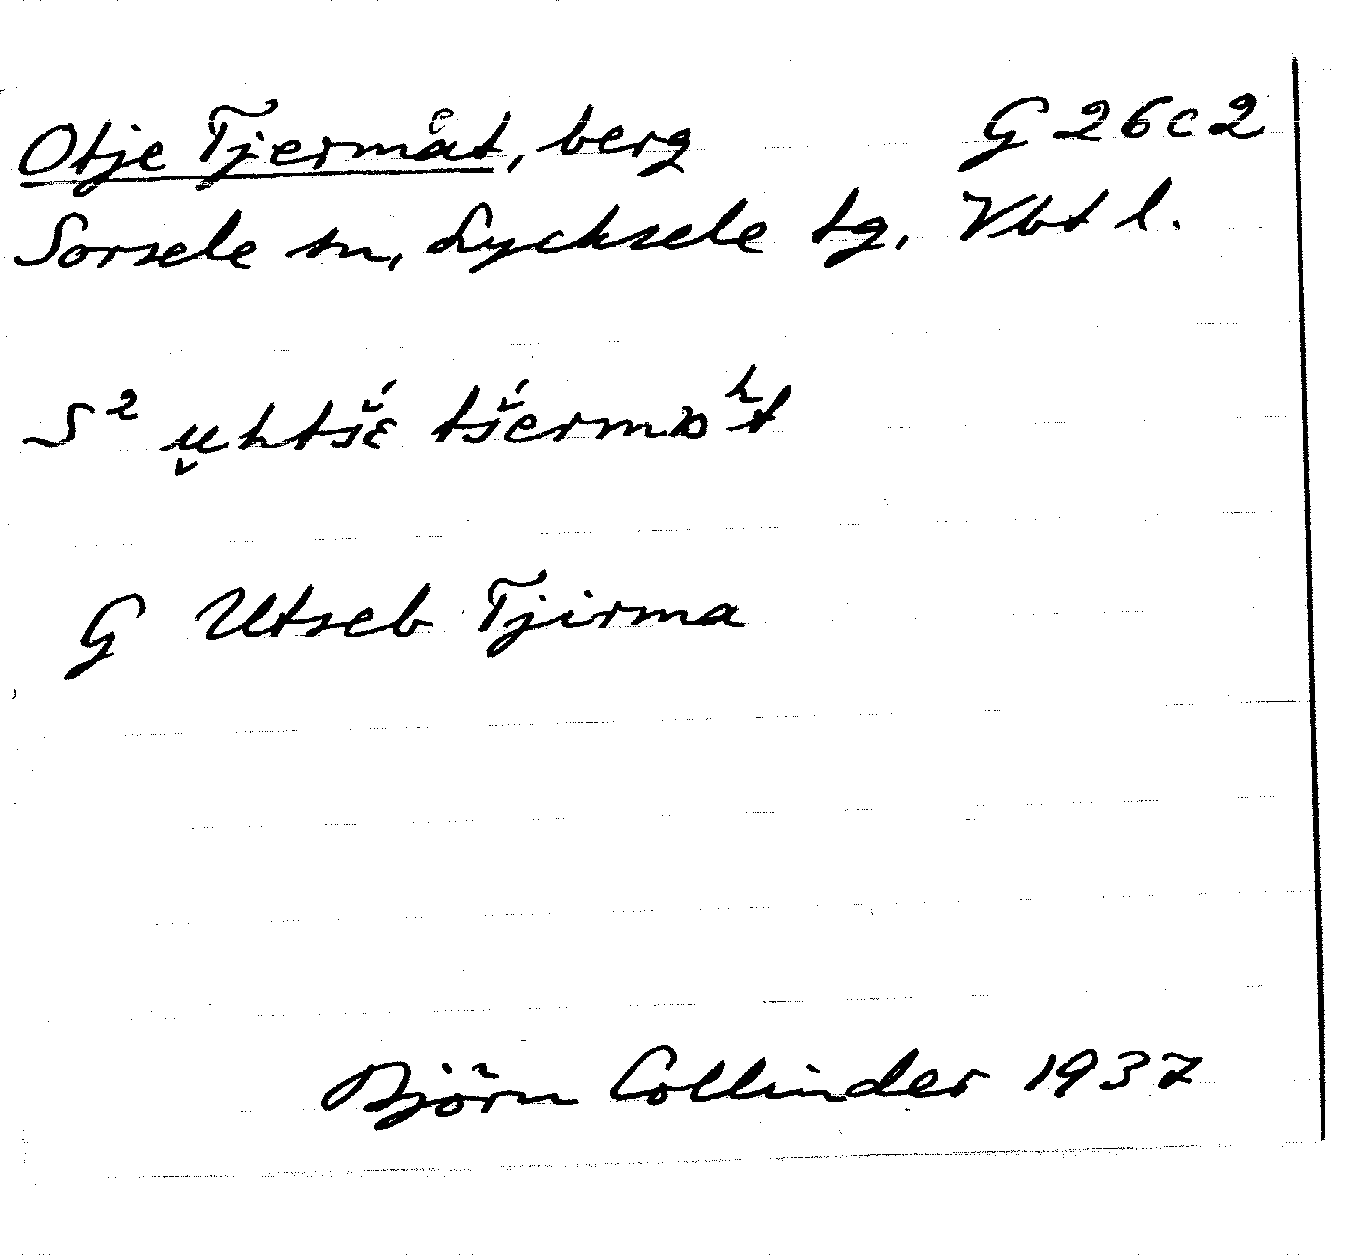 Otje Tjermåt, berg G 26 c 2
Sorsele sn, Lycksele tg, Vbt l.
S² u̬htš́ɛ tš́ermɒʰt
G Utseb Tjirma
Björn Collinder 1937